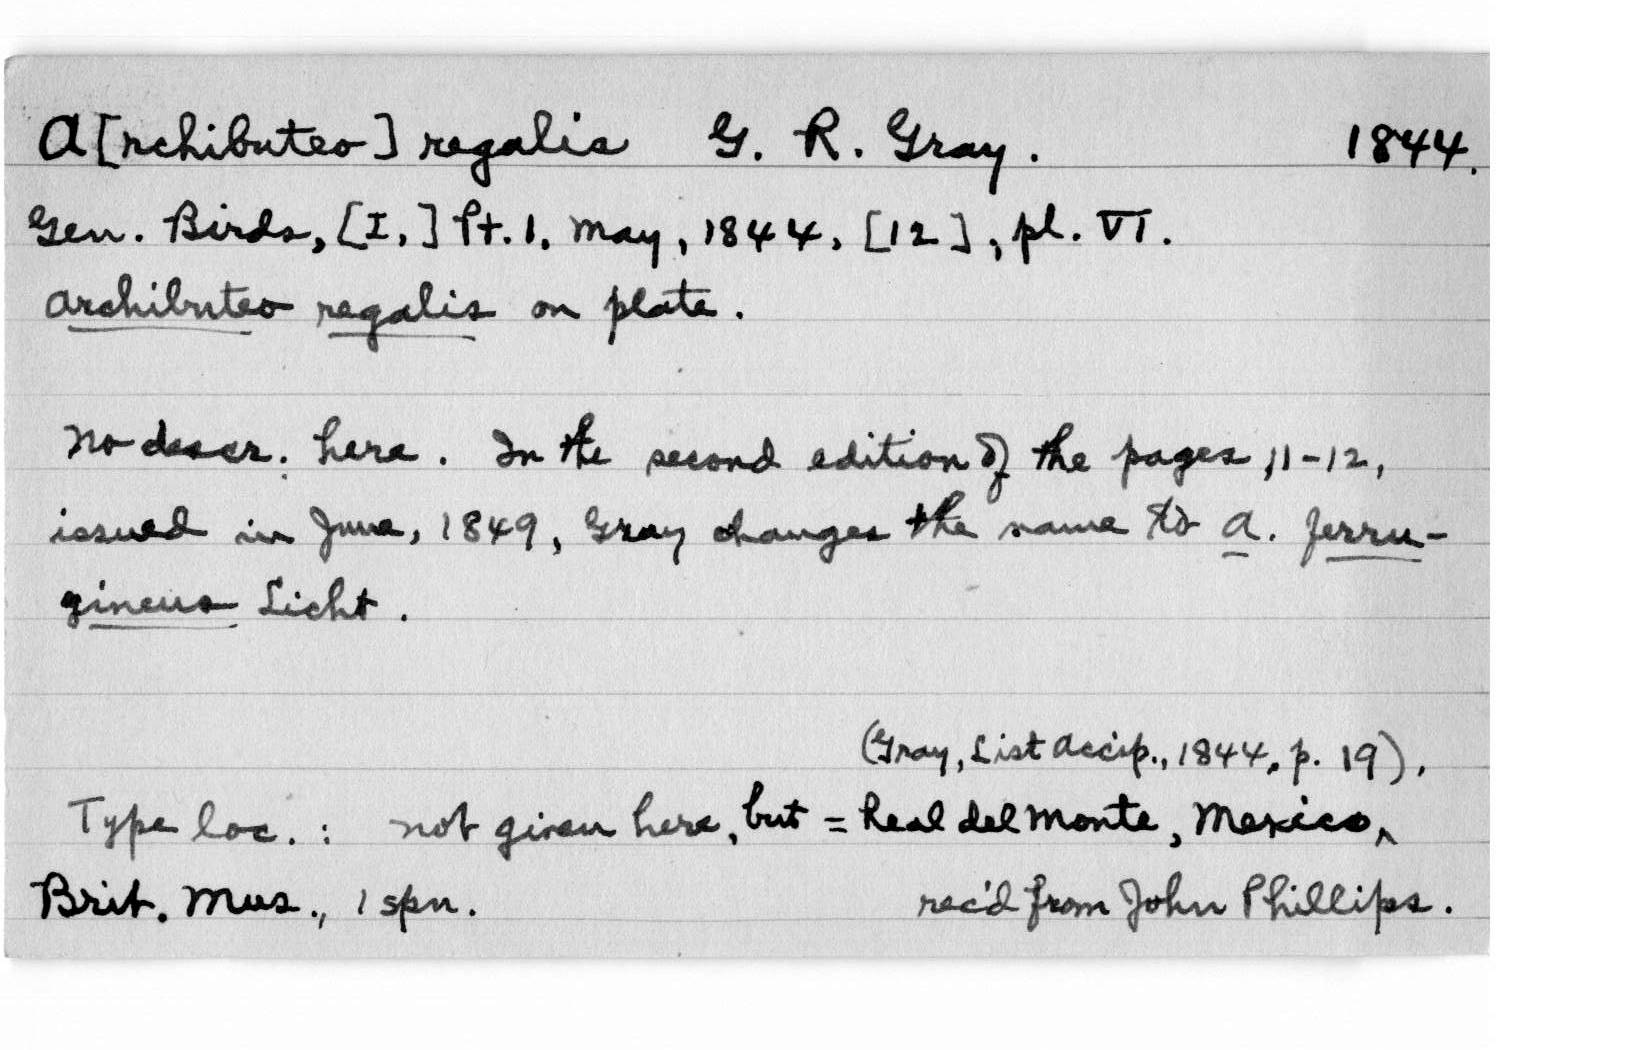 A[rchibuteo] regalis G. R. Gray. 1844.
Gen. Birds, [I,] Pt. 1. May, 1844, [12], pl. VI.
Archibuteo regalis on plate.
No descr. here. In the second edition of the pages 11-12,
issued in June, 1849, Gray changes the name to A. ferru-
gineus Licht.
(Gray, List Accip., 1844, p. 19).
Type loc.: not given here, but = Real del Monte, Mexico ^
Brit. Mus., 1 spn. rec'd from John Phillips.